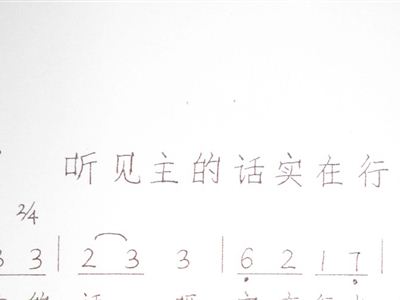 听见主的话实在行
2/4
3 3 | 2 3 3 | 6 2 1 7